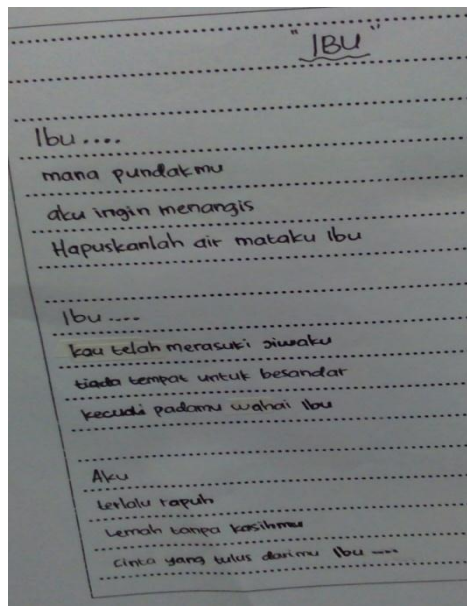 "IBU"
Ibu....
mana pundakmu
aku ingin menangis
Hapuskanlah air mataku Ibu
Ibu....
kau telah merasuki jiwaku
tiada tempat untuk besandar
kecuali padamu wahai Ibu
Aku
terlalu rapuh
Lemah tanpa kasihmu
cinta yang tulus darimu Ibu ....